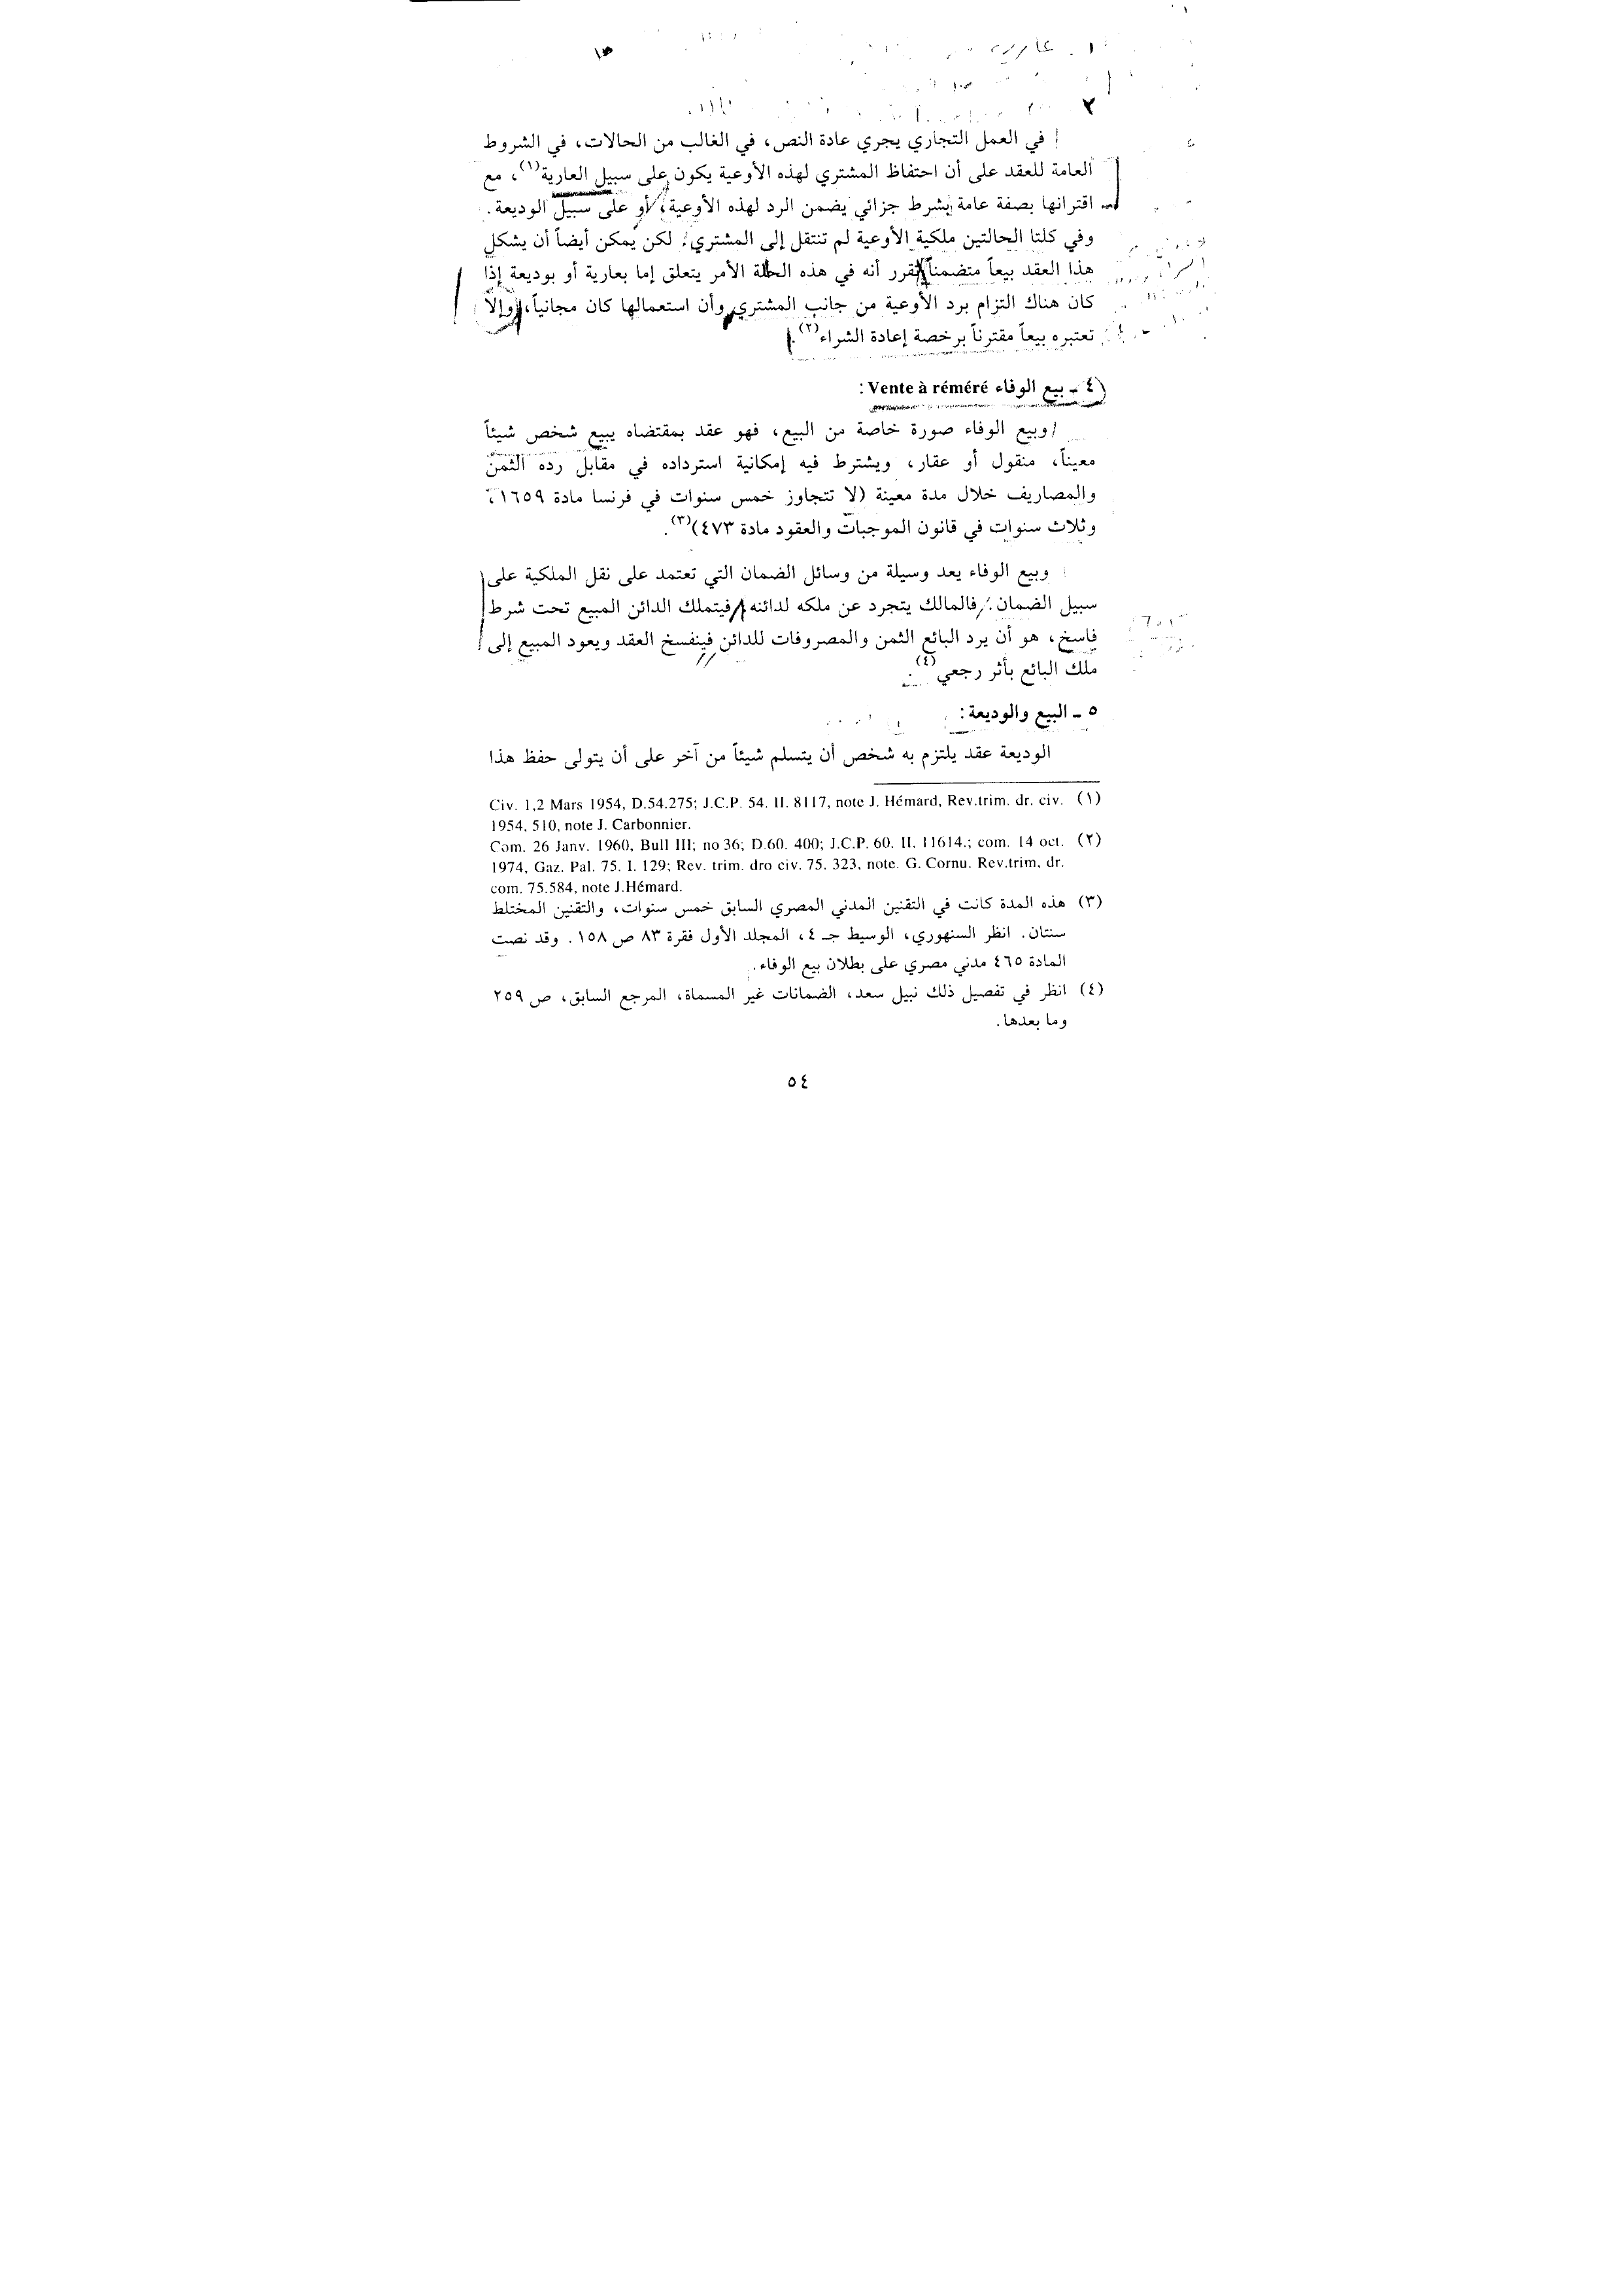 في العمل التجاري يجري عادة النص، في الغالب من الحالات، في الشروط
العامة للعقد على أن احتفاظ المشتري لهذه الأوعية يكون على سبيل العارية(١)، مع
اقترانها بصفة عامة بشرط جزائي يضمن الرد لهذه الأوعية، أو على سبيل الوديعة.
وفي كلتا الحالتين ملكية الأوعية لم تنتقل إلى المشتري. لكن يمكن أيضاً أن يشكل
هذا العقد بيعاً متضمناً تقرر أنه في هذه الحالة الأمر يتعلق إما بعارية أو بوديعة إذا
كان هناك التزام برد الأوعية من جانب المشتري وأن استعمالها كان مجانياً، وإلاّ
تعتبره بيعاً مقترناً برخصة إعادة الشراء(٢).
٤ ـ بيع الوفاء Vente à réméré :
وبيع الوفاء صورة خاصة من البيع، فهو عقد بمقتضاه يبيع شخص شيئاً
معيناً، منقول أو عقار، ويشترط فيه إمكانية استرداده في مقابل رده الثمن
والمصاريف خلال مدة معينة (لا تتجاوز خمس سنوات في فرنسا مادة ١٦٥٩،
وثلاث سنوات في قانون الموجبات والعقود مادة ٤٧٣)(٣).
وبيع الوفاء يعد وسيلة من وسائل الضمان التي تعتمد على نقل الملكية على
سبيل الضمان. فالمالك يتجرد عن ملكه لدائنه فيتملك الدائن المبيع تحت شرط
فاسخ، هو أن يرد البائع الثمن والمصروفات للدائن فينفسخ العقد ويعود المبيع إلى
ملك البائع بأثر رجعي(٤).
٥ ـ البيع والوديعة:
الوديعة عقد يلتزم به شخص أن يتسلم شيئاً من آخر على أن يتولى حفظ هذا
(١) Civ. 1,2 Mars 1954, D.54.275; J.C.P. 54. II. 8117, note J. Hémard, Rev.trim. dr. civ.
1954, 510, note J. Carbonnier.
(٢) Com. 26 Janv. 1960, Bull III; no 36; D.60. 400; J.C.P. 60. II. 11614.; com. 14 oct.
1974, Gaz. Pal. 75. I. 129; Rev. trim. dro civ. 75. 323, note. G. Cornu. Rev.trim, dr.
com. 75.584, note J.Hémard.
(٣) هذه المدة كانت في التقنين المدني المصري السابق خمس سنوات، والتقنين المختلط
سنتان. انظر السنهوري، الوسيط جـ ٤، المجلد الأول فقرة ٨٣ ص ١٥٨. وقد نصت
المادة ٤٦٥ مدني مصري على بطلان بيع الوفاء.
(٤) انظر في تفصيل ذلك نبيل سعد، الضمانات غير المسماة، المرجع السابق، ص ٢٥٩
وما بعدها.
٥٤